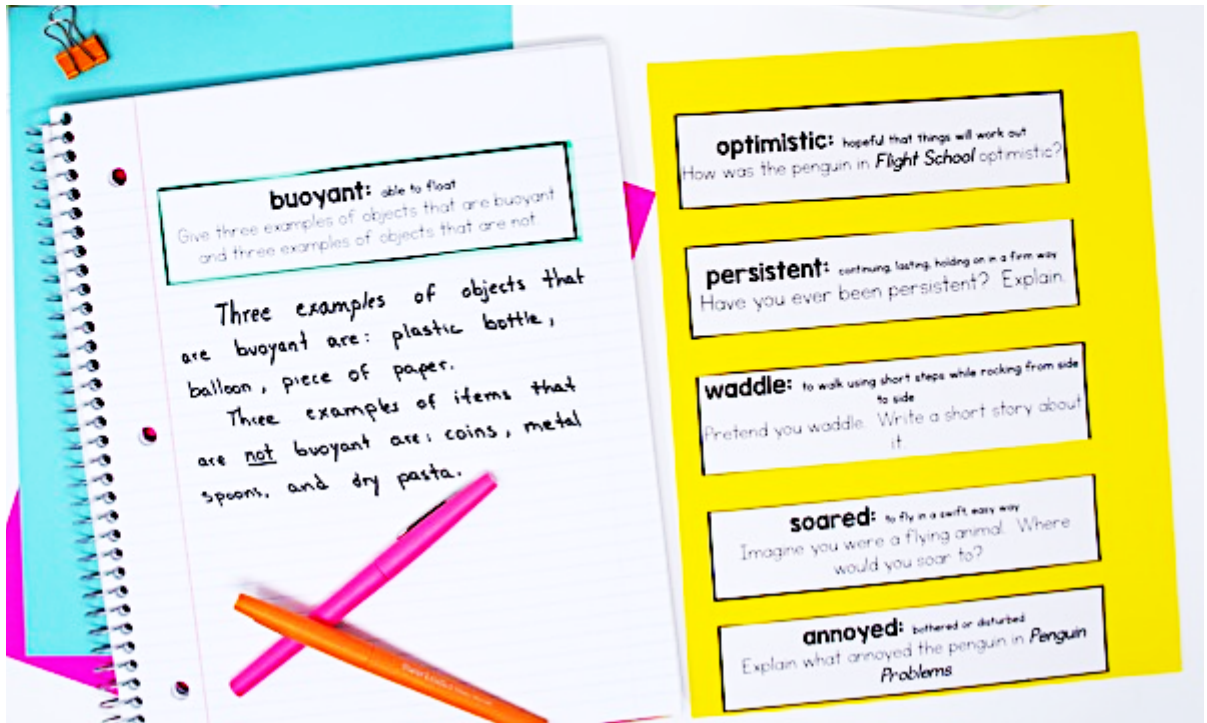 buoyant: able to float
Give three examples of objects that are buoyant
and three examples of objects that are not.
Three examples of objects that
are buoyant are: plastic bottle,
balloon, piece of paper.
Three examples of items that
are not buoyant are: coins, metal
spoons, and dry pasta.
optimistic: hopeful that things will work out
How was the penguin in Flight School optimistic?
persistent: continuing, lasting, holding on in a firm way
Have you ever been persistent? Explain.
waddle: to walk using short steps while rocking from side
to side
Pretend you waddle. Write a short story about
it.
soared: to fly in a swift, easy way
Imagine you were a flying animal. Where
would you soar to?
annoyed: bothered or disturbed
Explain what annoyed the penguin in Penguin
Problems.